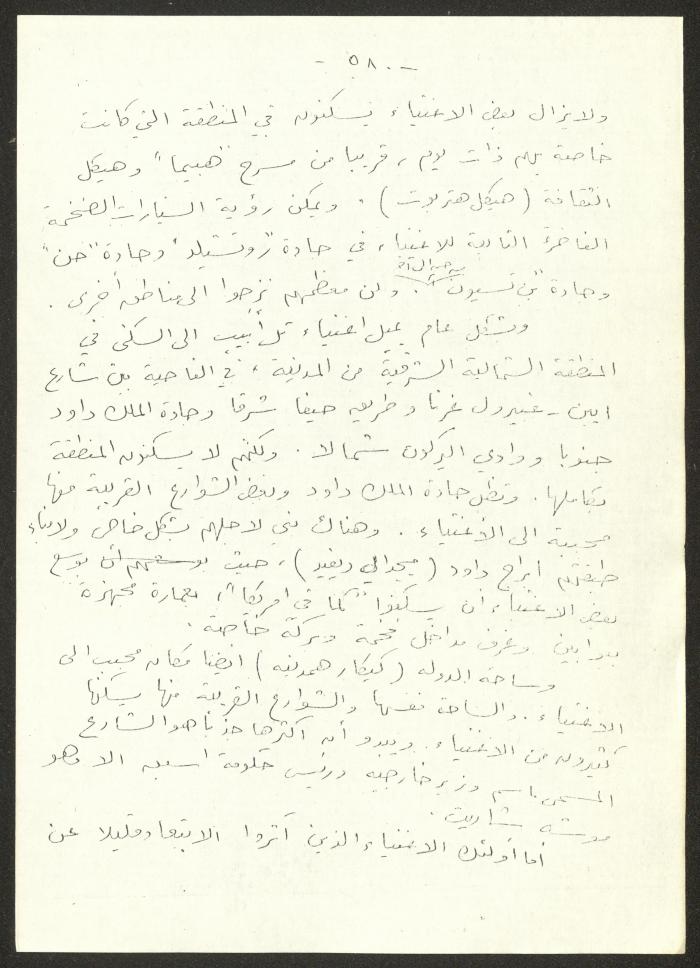 - ٥٨٠ -
ولا يزال بعض الاغنياء يسكنون في المنطقة التي كانت
خاصة بهم ذات يوم، قريبا من مسرح "هبيما" وهيكل
الثقافة (هيكل هتربوت). ويمكن رؤية السيارات الضخمة
الفاخرة التابعة للاغنياء في جادة "روتشيلد" وجادة "حن"
وجادة "بن تسيون". ولكن معظمهم نزحوا الى مناطق أخرى.
وبشكل عام يميل اغنياء تل أبيب الى السكنى في
المنطقة الشمالية الشرقية من المدينة، في الناحية بين شارع
ابين - غبيرول غربا وطريق حيفا شرقا وجادة الملك داود
جنوبا ووادي اليركون شمالا. ولكنهم لا يسكنون المنطقة
بكاملها. وتظل جادة الملك داود وبعض الشوارع القريبة منها
محببة الى الأغنياء. وهناك بني لاجلهم بشكل خاص ولابناء
طبقتهم ابراج داود (مجدالي ديفيد)، حيث يوسع
بعض الاغنياء ان يسكنوا "كما في امريكا"، بعمارة مجهزة
ببوابين وغرف مداخل فخمة وبركة خاصة.
وساحة الدولة (كيكار همدينه) ايضا مكان محبب الى
الاغنياء. والساحة نفسها والشوارع القريبة منها يسكنها
كثيرون من الاغنياء. ويبدو أن اكثرها جذبا هو الشارع
المسمى باسم وزير خارجية ورئيس حكومة اسبق الا وهو
موشه شاريت.
أما أولئك الاغنياء الذين آثروا الابتعاد قليلا عن